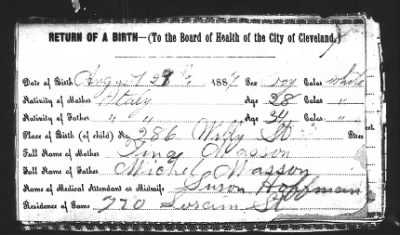 RETURN OF A BIRTH—(To the Board of Health of the City of Cleveland,)
Date of Birth August 29th 1887 Sex boy Color white
Nativity of Mother Italy Age 28 Color "
Nativity of Father " " Age 34 Color "
Place of Birth (of child) No. 286 Willy St Street
Full Name of Mother Masson
Full Name of Father Michel Masson
Name of Medical Attendant or Midwife Susan Hoffmann
Residence of Same 770 Lorain St